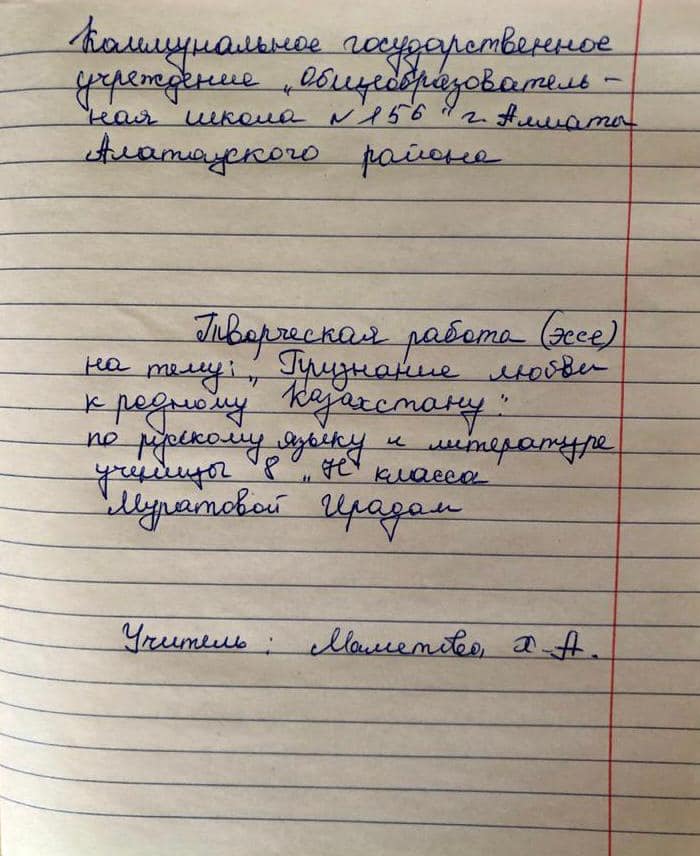 Коммунальное государственное
учреждение „Общеобразователь-
ная школа №156" г. Алматы
Алатауского района
Творческая работа (эссе)
на тему: „Признание любви
к родному Казахстану"
по русскому языку и литературе
ученицы 8 „Н" класса
Муратовой Ирадам
Учитель: Маметова Х-А.